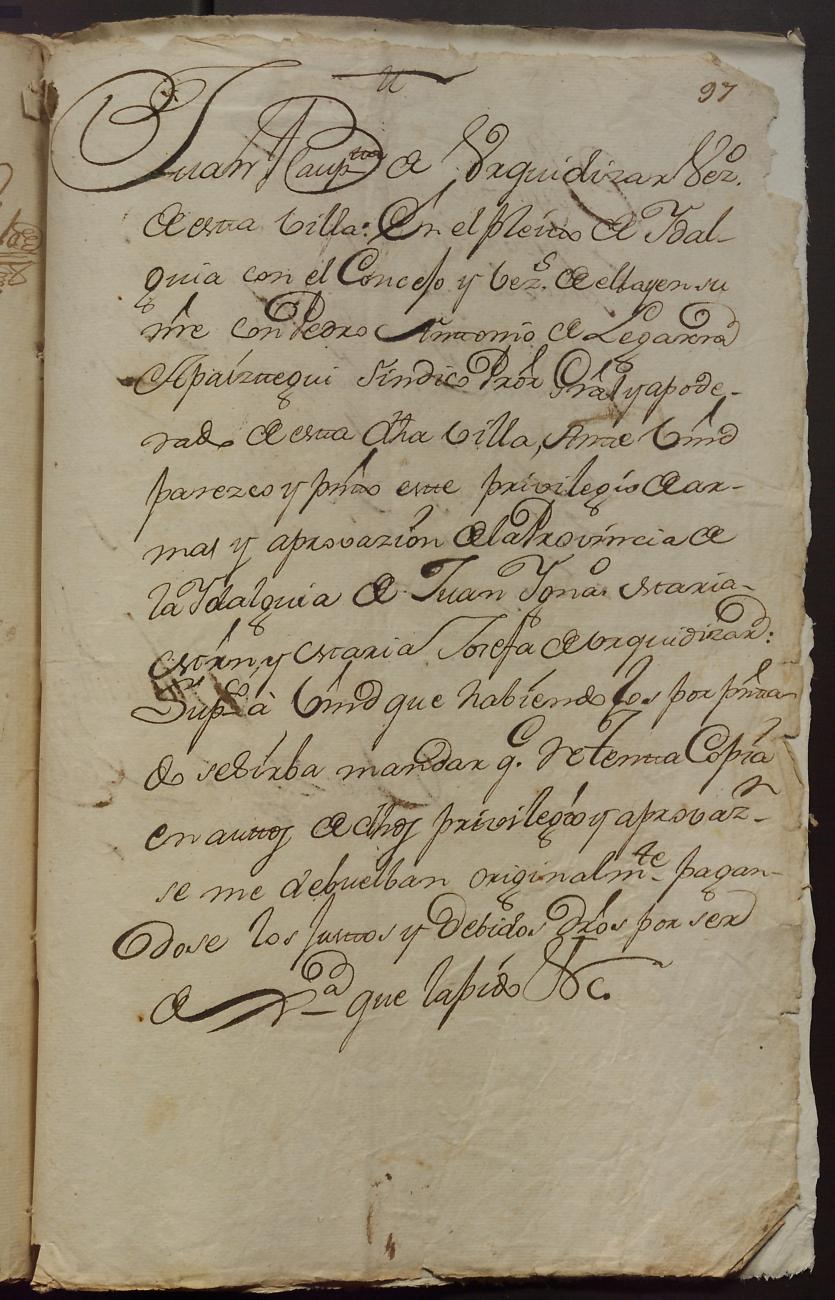 97
Juan Baup.ta de Vrquidizar Vez.o
de esta Villa: En el pleito de Ydal-
guia con el Concejo y bez.s de ella, y en su
nre con Pedro Antonio de Legarra
Apaiztegui Sindico Prór Grâl y apode-
rado de esta dha Villa, Ante Vmd
parezco y pnto este privilegio de ar-
mas y aprovazion de la Provincia de
la Ydalguia de Juan Ygna.o Maria
Mrn y Maria Josefa de Vrquidizar:
Sup.co à Vmd que habiendolos por pnta
do se sirba mandar q.e Retenta Copia
en auttos de dhos privilegio y aprovaz.n
se me debuelban originalm.te pagan-
dose los Justos y Debidos Drôs por ser
de que lapido &c.